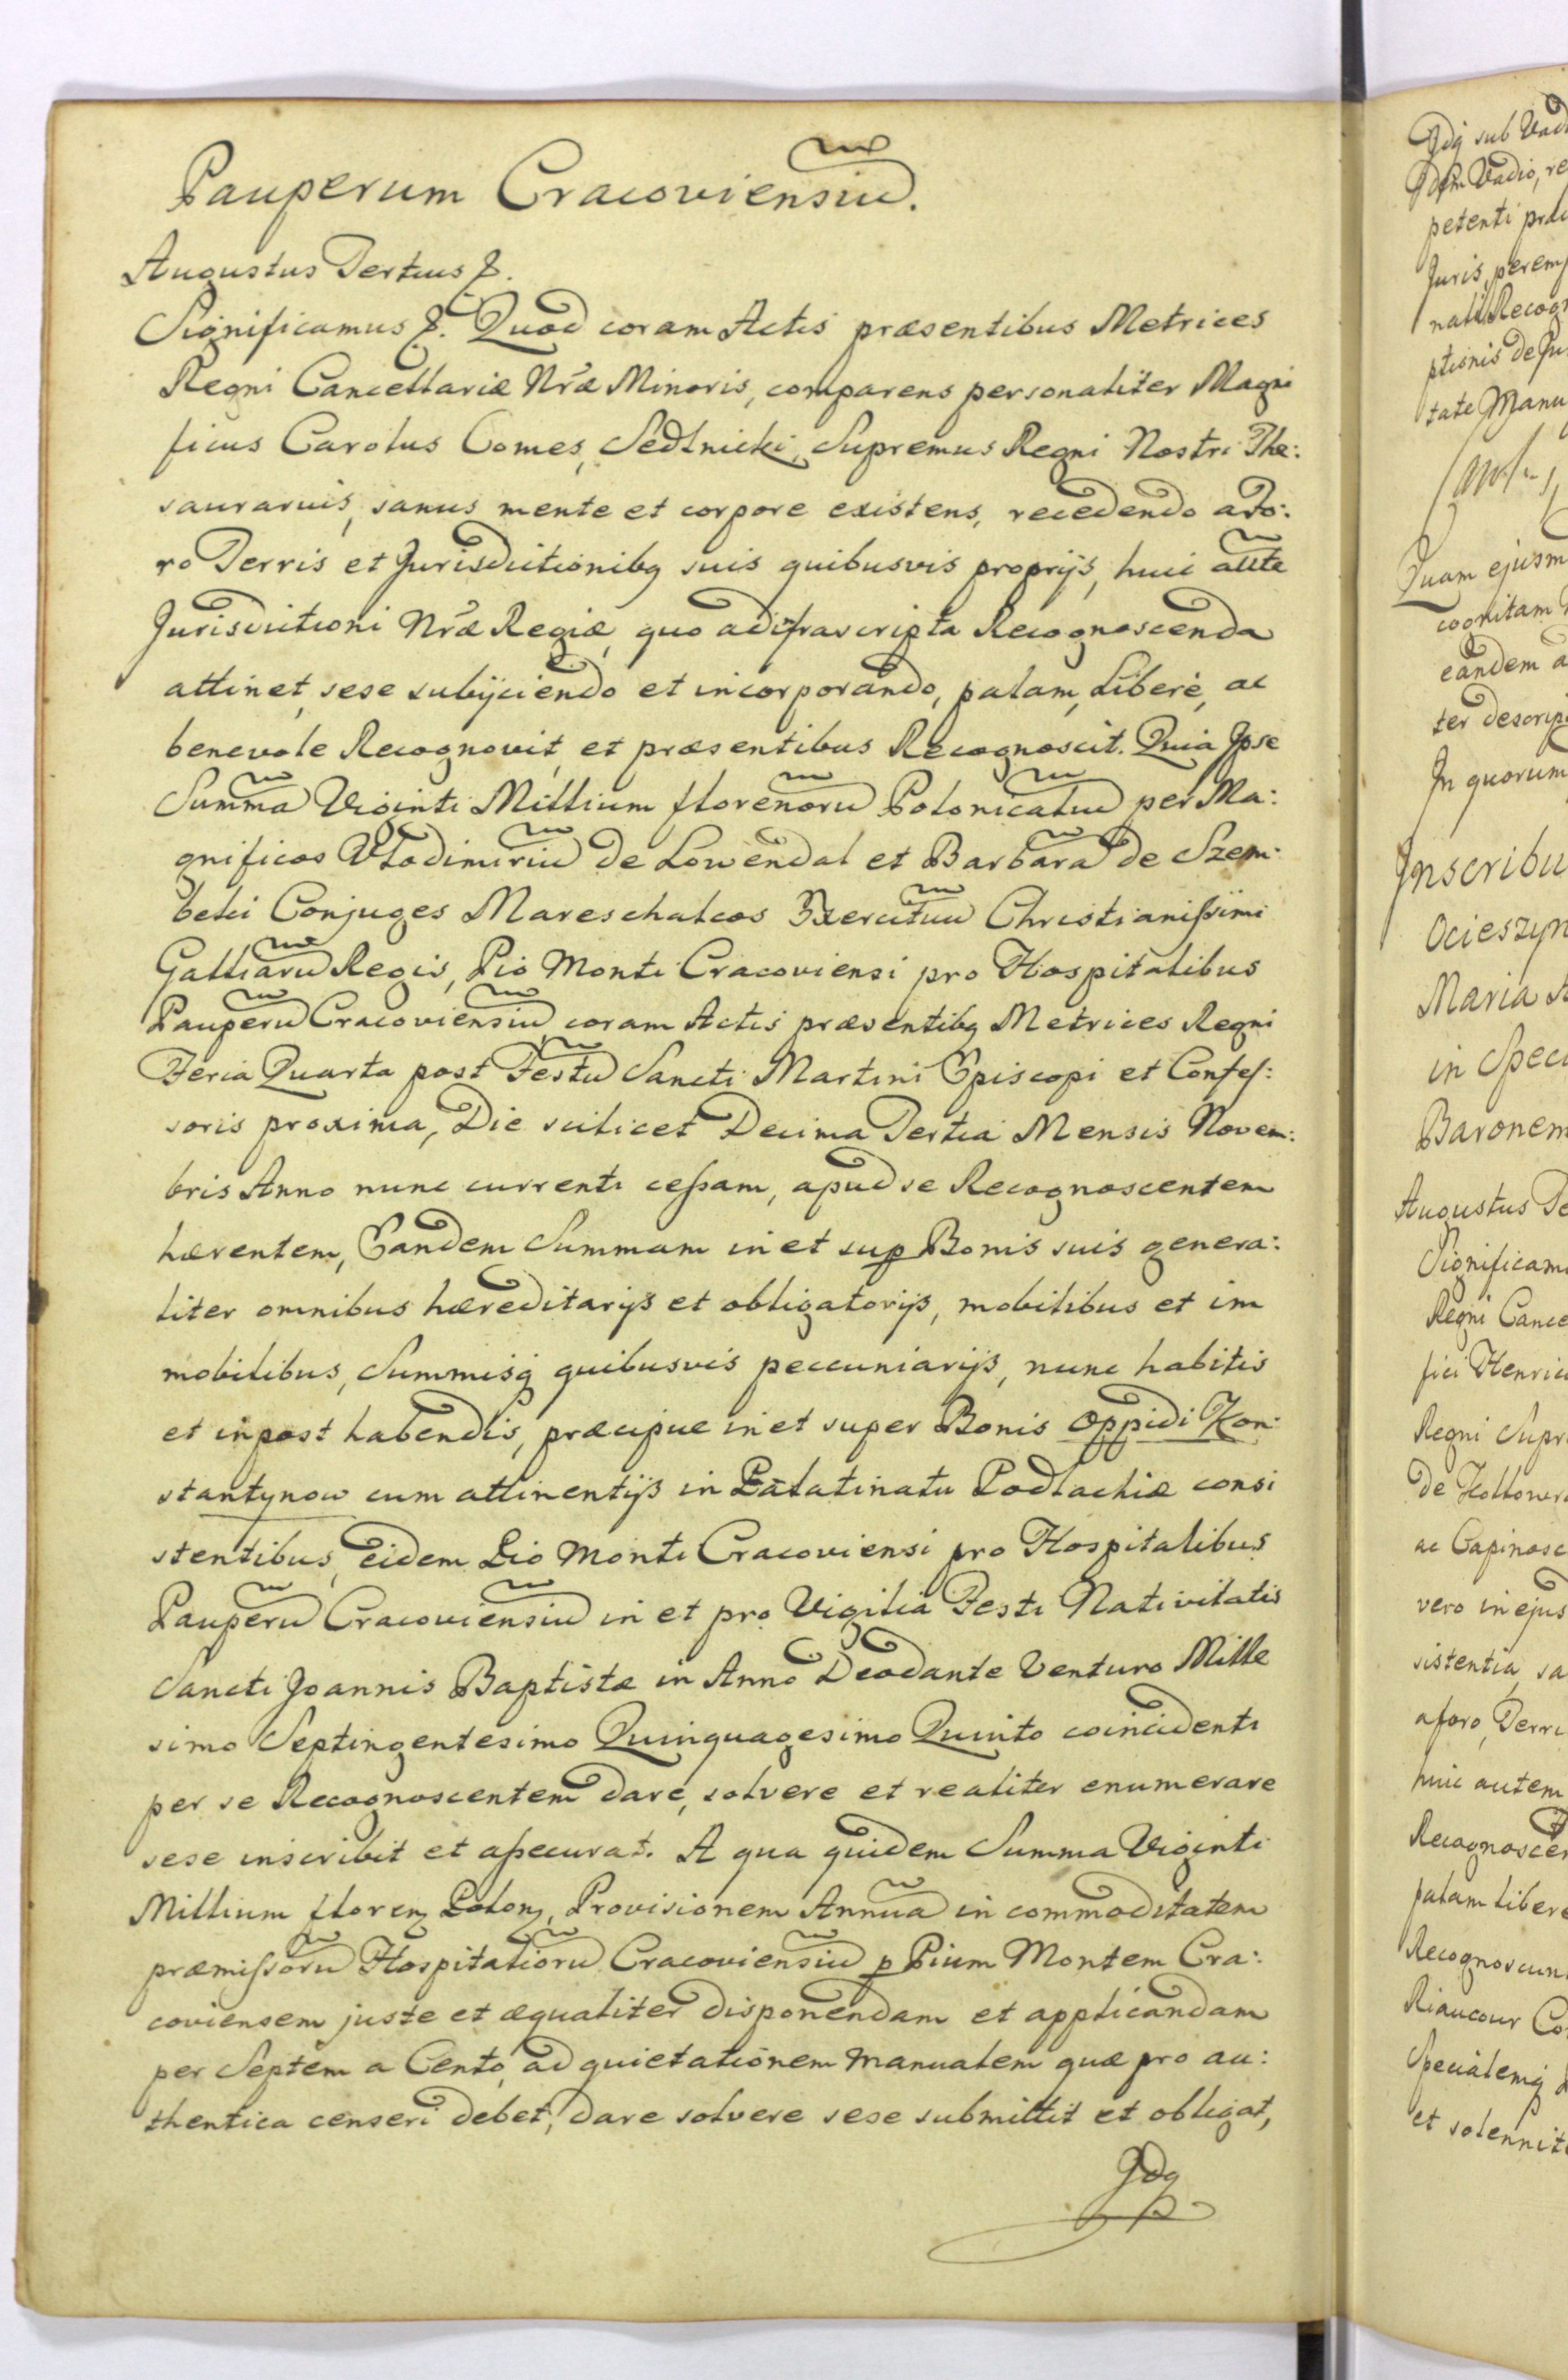 Pauperum Cracoviensiu.
Augustus Tertius &.
Significamus &. Quod coram Actis præsentibus Metrices
Regni Cancellariæ Nræ Minoris, comparens personaliter Magni
ficus Carolus Comes, Sedlnicki, Supremus Regni Nostri The:
saurarius, sanus mente et corpore existens, recedendo a Fo:
ro Terris et Jurisdictionibq suis quibusvis proprijs, huic
Jurisdictioni Nræ Regiæ, quo ad ifrascripta Recognoscenda
attinet, sese subijciendo et incorporando, palam, Liberè, ac
benevole Recognovit, et præsentibus Recognoscit. Quia Ipse
Summa Viginti Millium florenoru Polonicaliu per Ma:
gnificos Vlodimiriu de Lowendal et Barbara de Szem:
beki Conjuges Mareschalcos Exercituu Christianissimi
Galliaru Regis, Pio Monti Cracoviensi pro Hospitalibus
Pauperu Cracoviensiu coram Actis præsentibq Metrices Regni
Feria Quarta post Festu Sancti Martini Episcopi et Confes:
soris proxima, Die scilicet Decima Tertia Mensis Novem:
bris Anno nunc currenti cessam, apud se Recognoscentem
hærentem, Eandem Summam in et sup Bonis suis genera:
liter omnibus hæreditarijs et obligatorijs, mobilibus et im
mobilibus, Summisq quibusvis peccuniarijs, nunc habitis
et inpost habendis, præcipue in et super Bonis Oppidi Kon:
stantynow cum attinentijs in Palatinatu Podlachiæ consi
stentibus, eidem Pio Monti Cracoviensi pro Hospitalibus
Pauperu Cracoviensiu in et pro Vigilia Festi Nativitatis
Sancti Joannis Baptistæ in Anno Deodante Venturo Mille
simo Septingentesimo Quinquagesimo Quinto coincidenti
per se Recognoscentem dare, solvere et realiter enumerare
sese inscribit et assecurat. A qua quidem Summa Viginti
Millium floren Polon, Provisionem Annua in commoditatem
præmissoru Hospitalioru Cracoviensiu p Pium Montem Cra:
coviensem juste et æqualiter disponendam et applicandam
per Septem a Cento, ad quietationem manualem quæ pro au:
thentica censeri debet, dare solvere sese submittit et obligat,
Idq
Idq sub Vad
petenti præ
Juris, peremp
nali Recog
ptionis de Ju
tate Manu
Quam ejusm
cognitam
eandem a
ter descrip
In quorum
Inscribu
Ocieszyn
Maria A
in Speci
Baronem
Augustus Te
Significam
Regni Cance
fici Henric
Regni Supr
ac Capinosc
vero in ejus
sistentia, sa
a foro, Terri
huic autem
Recognoscen
palam libere
Recognoscun
Riaucour Co
Specialemq
et solennit